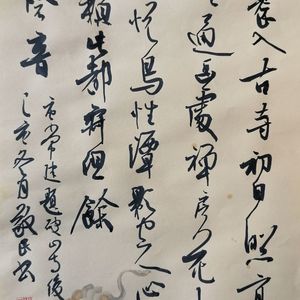 晨入古寺初日照高
通幽處禪房花
悅鳥性潭影空人心
籟此都寂但餘
磬音
常建題破山寺後
己亥冬月敬民書